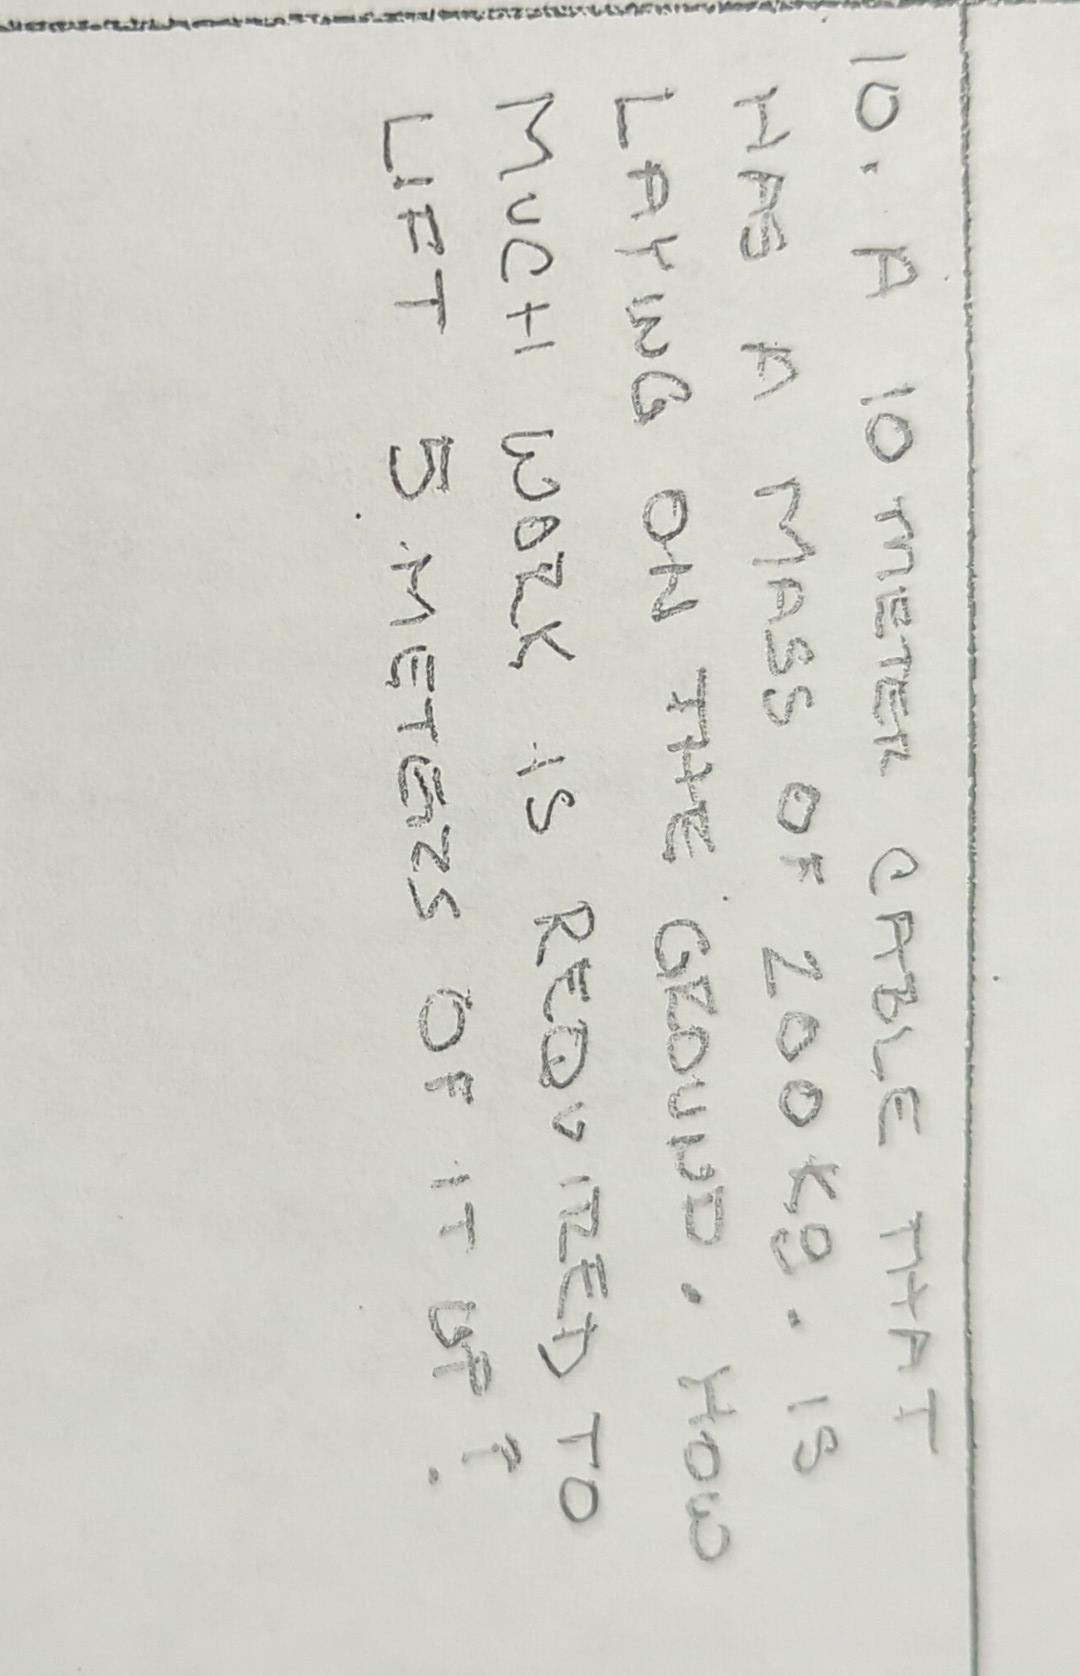 10. A 10 METER CABLE THAT
HAS A MASS OF 200 Kg. IS
LAYING ON THE GROUND. HOW
MUCH WORK IS REQUIRED TO
LIFT 5 METERS OF IT UP?